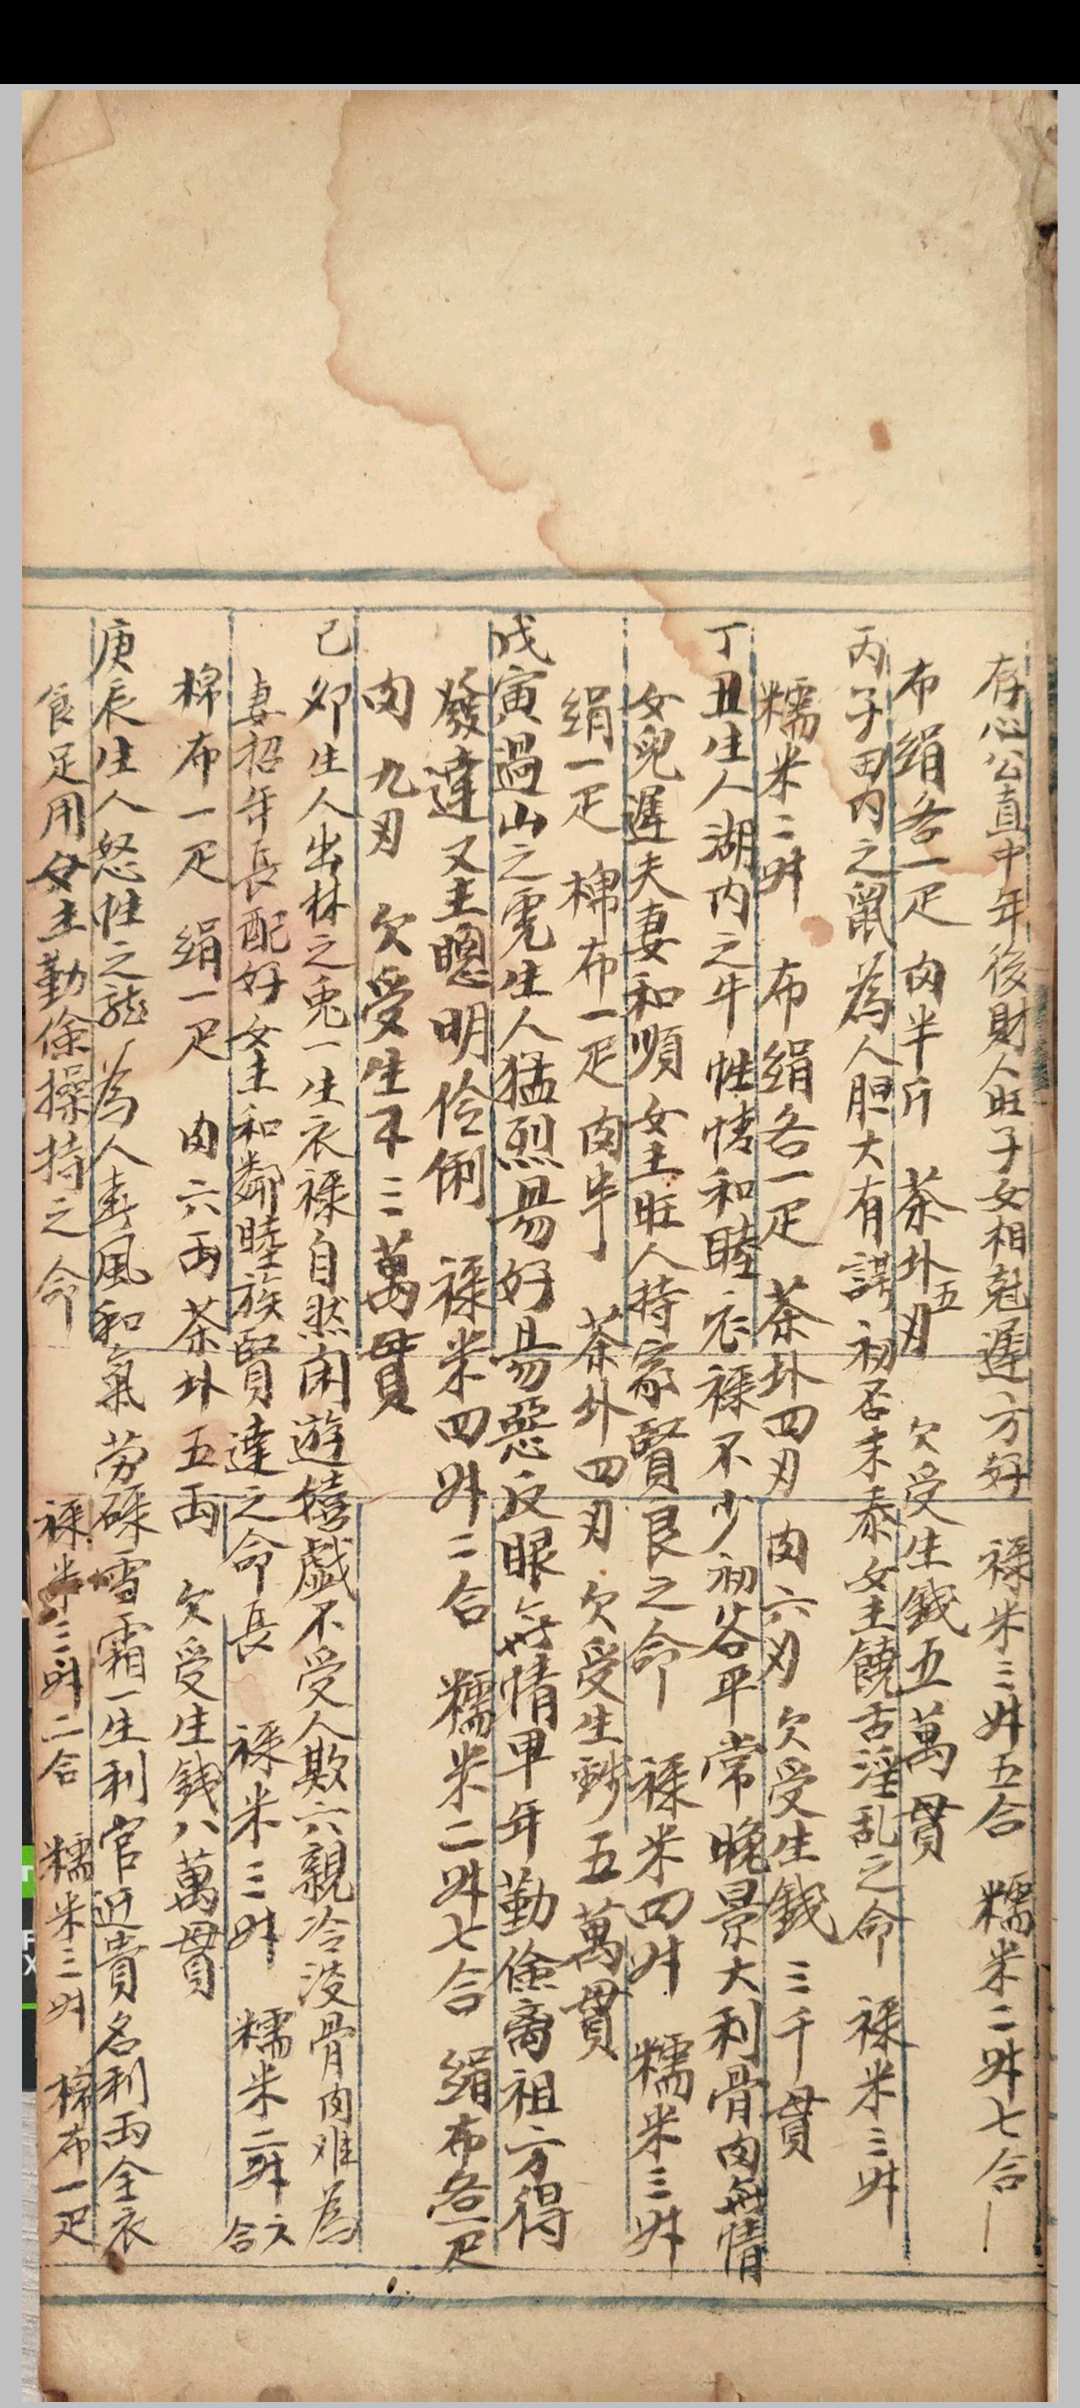 存心公直中年後財人旺子女相尅遲方好 禄米三升五合 糯米二升七合
布絹各一疋 肉半斤 茶外五刄 欠受生錢五萬貫
丙子田内之鼠為人胆大有謀初否末泰女主饒舌淫乱之命 禄米三升
糯米二升 布絹各一疋 茶外四刄 肉六刄 欠受生錢三千貫
丁丑生人湖内之牛性情和睦衣禄不少初谷平常晚景大利骨肉無情
女兒遲夫妻和順女主旺人持家賢良之命 禄米四升 糯米三升
絹一疋 棉布一疋 肉半 茶外四刄 欠受生 五萬貫
戊寅過山之虎生人猛烈易好易惡反眼無情甲年勤儉离祖方得
發達又主聰明伶俐 禄米四升二合 糯米二升七合 絹布各一疋
肉九刄 欠受生 三萬貫
己卯生人出林之兎一生衣禄自然闲遊嬉戯不受人欺六親冷淡骨肉难為
妻招年長配好女主和鄰睦族賢達之命長 禄米三升 糯米二升六合
棉布一疋 絹一疋 肉六両 茶外五両 欠受生錢八萬貫
庚辰生人怒性之龍為人春風和氣劳碌雪霜一生利官近貴名利両全衣
食足用女主勤儉操持之命 禄米三升二合 糯米三升 棉布一疋